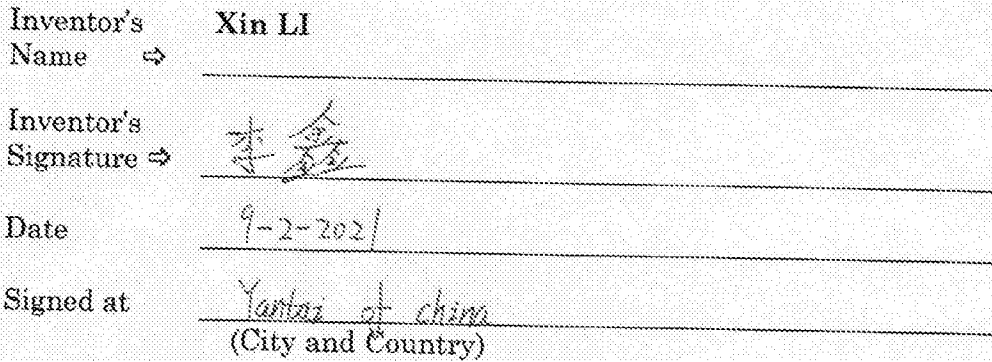 Inventor's Name ⇨ Xin LI
Inventor's Signature ⇨ 李鑫
Date 9-2-2021
Signed at Yantai of china
(City and Country)